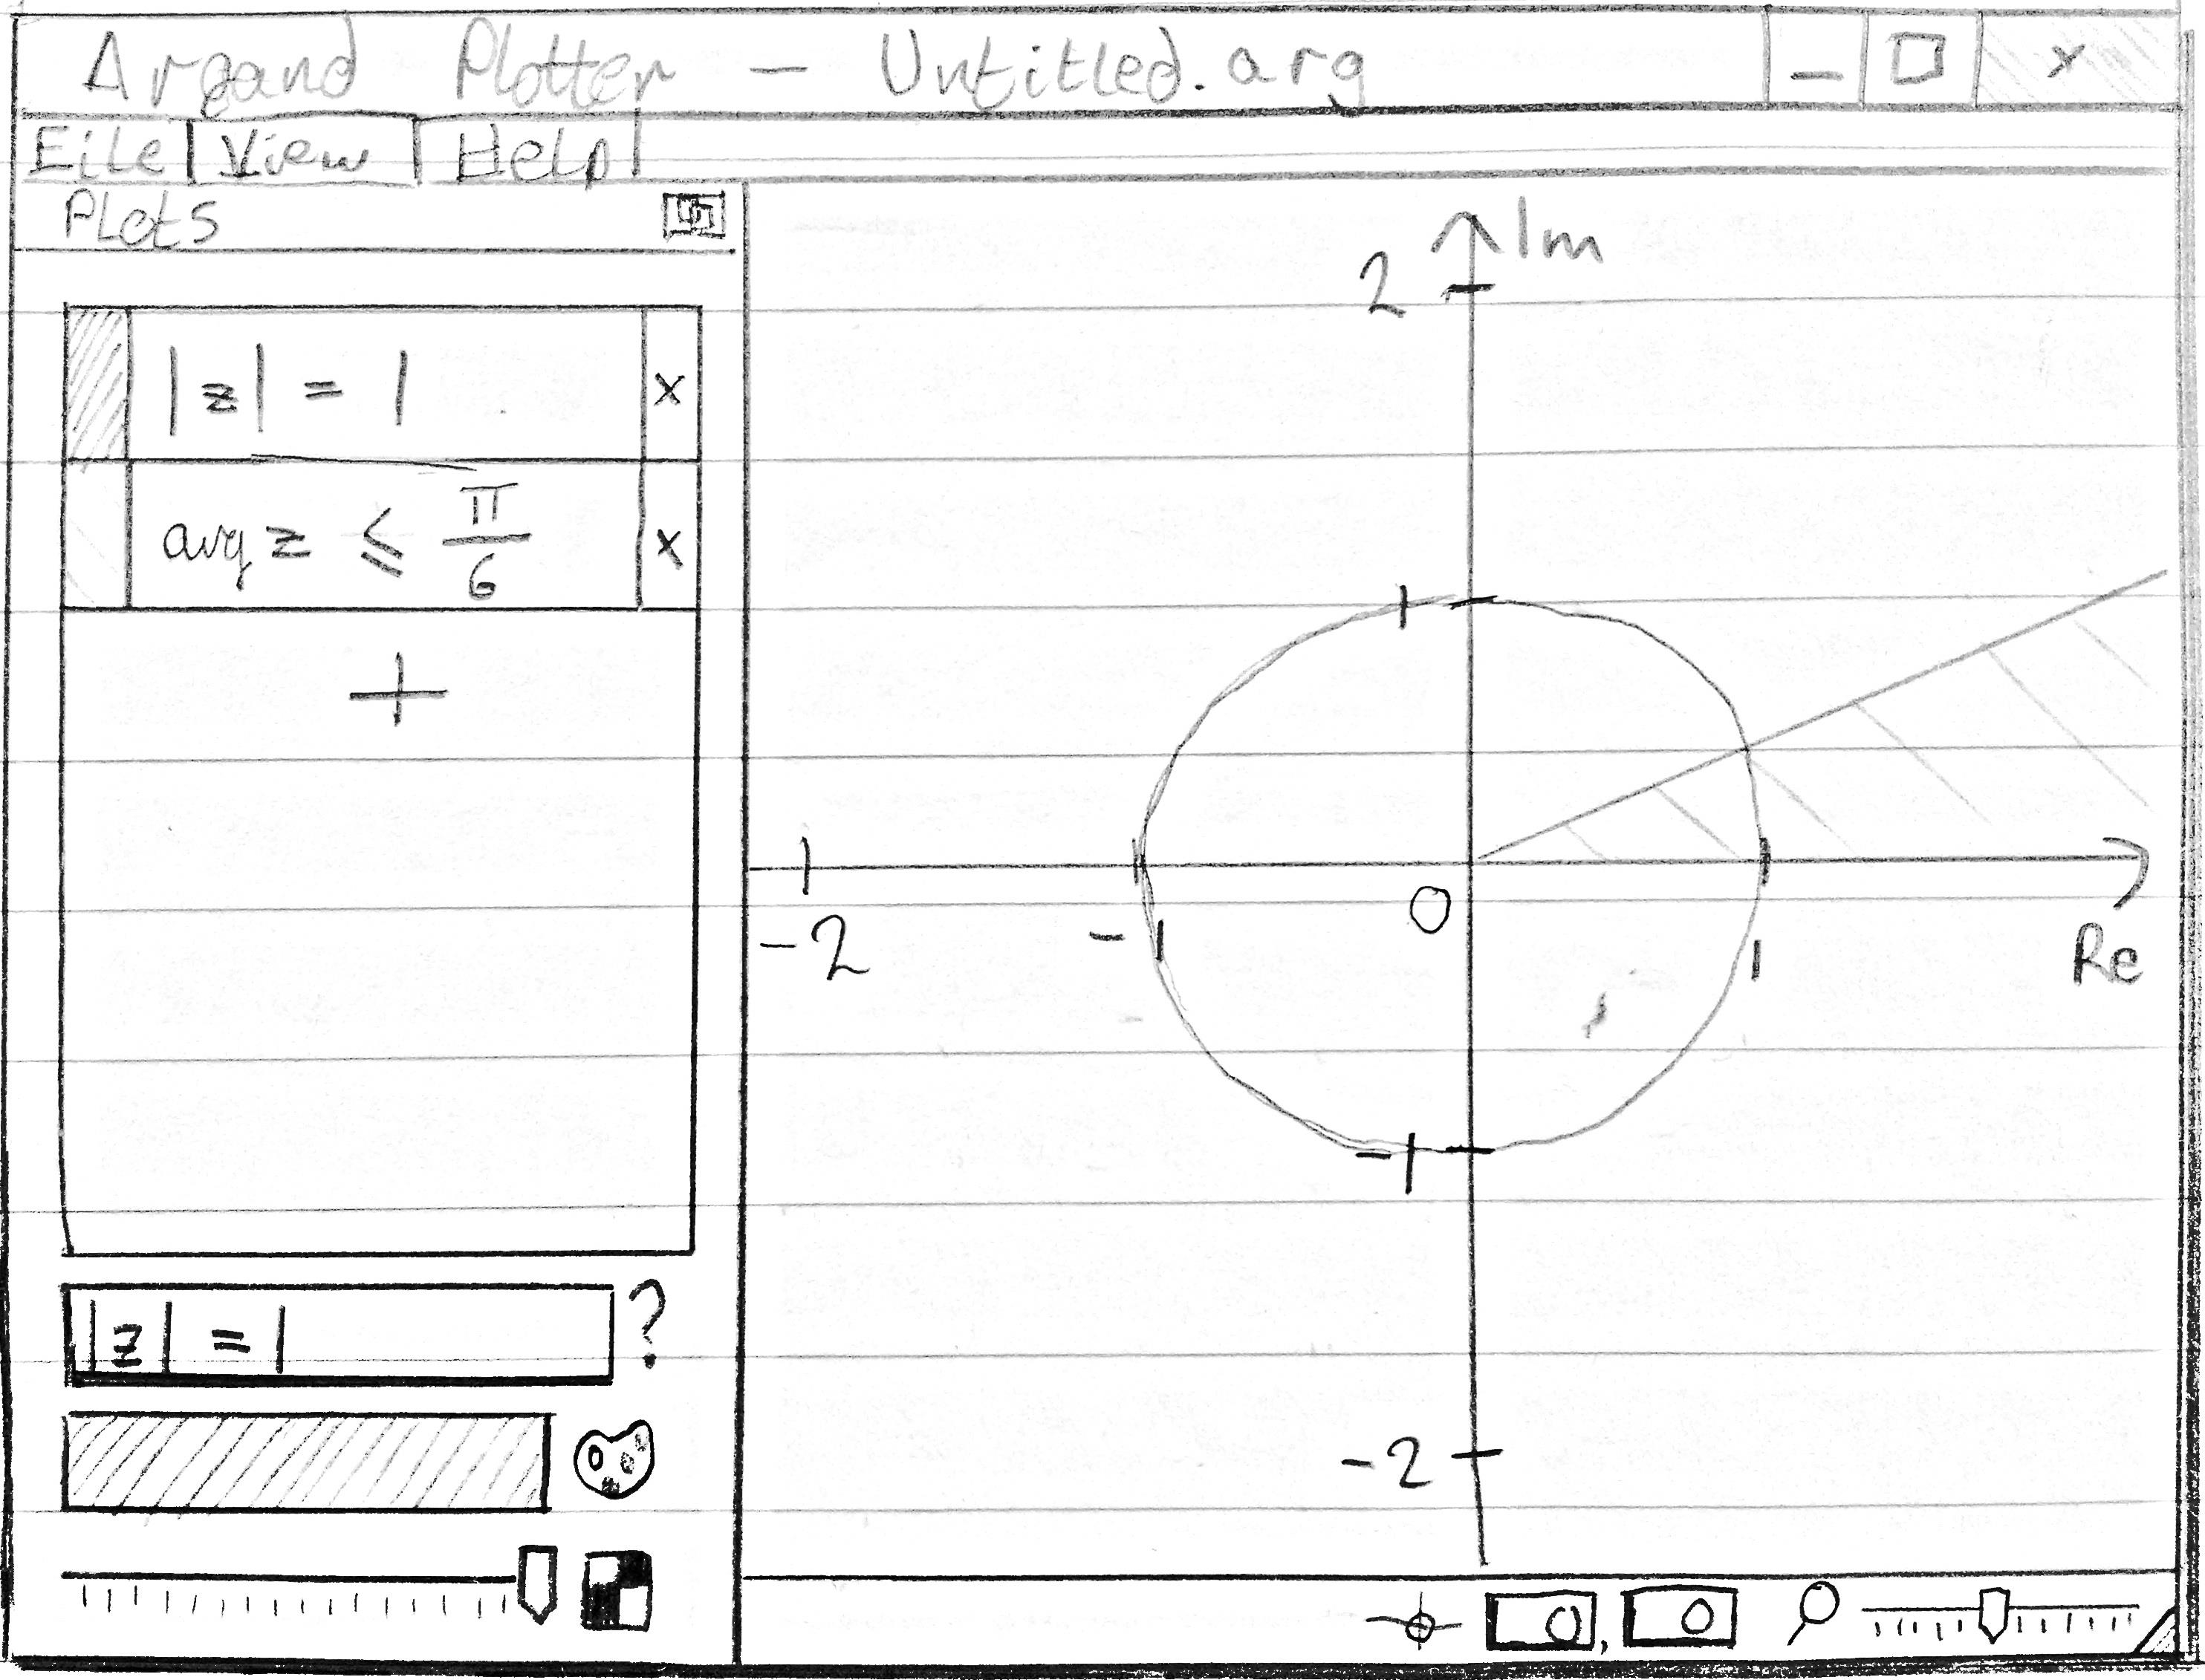 Argand Plotter – Untitled.arg
_ □ x
File View Help
Plots
|z| = 1 x
arg z ≤ π/6 x
+
|z| = 1 ?
Im
2
1
-2 -1 0 1 Re
-1
-2
0, 0